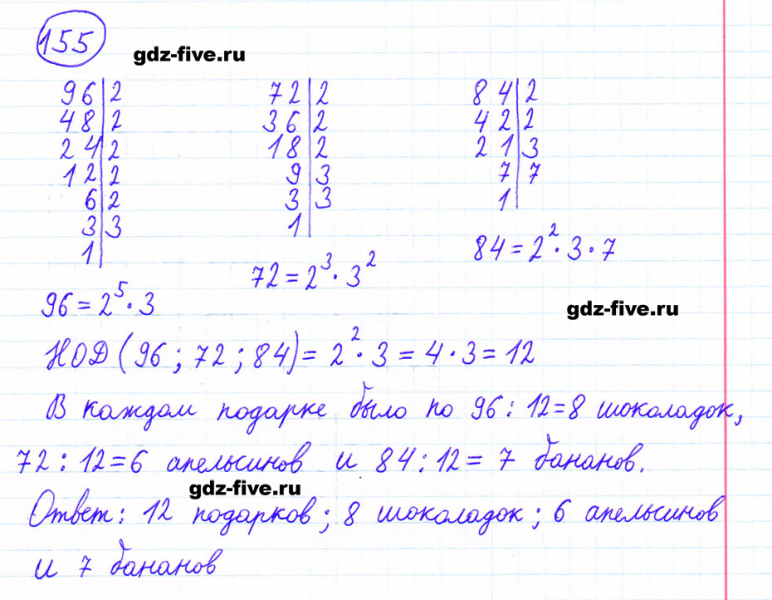 155
gdz-five.ru
96|2
48|2
24|2
12|2
6|2
3|3
1|
96 = 2⁵ · 3
72|2
36|2
18|2
9|3
3|3
1|
72 = 2³ · 3²
84|2
42|2
21|3
7|7
1|
84 = 2² · 3 · 7
gdz-five.ru
НОД (96 ; 72 ; 84) = 2² · 3 = 4 · 3 = 12
В каждом подарке было по 96 : 12 = 8 шоколадок,
72 : 12 = 6 апельсинов и 84 : 12 = 7 бананов.
gdz-five.ru
Ответ: 12 подарков ; 8 шоколадок ; 6 апельсинов
и 7 бананов